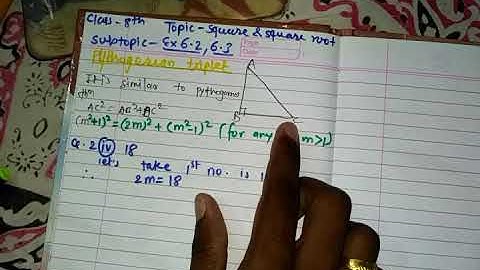 Class - 8th Topic - Square & square root
Subtopic - Ex 6.2, 6.3
Pythagorean triplet
A
It's similar to pythagoras
thm
AC² = AB² + BC²
B
(m²+1)² = (2m)² + (m²-1)² (for any m>1)
Q. 2 (iv) 18
let's take 1st no. is
∴ 2m = 18